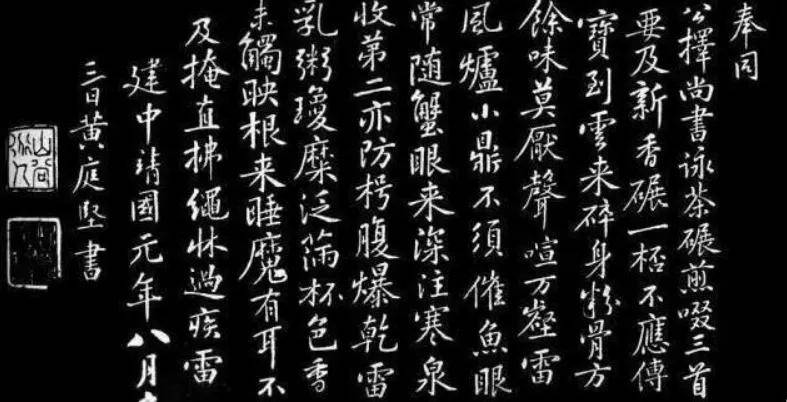 奉同
公擇尚書詠茶碾煎啜三首
要及新香碾一桮不應傳
寶到雲来碎身粉骨方
餘味莫厭聲喧万壑雷
風爐小鼎不須催魚眼
常随蟹眼来深注寒泉
收第二亦防枵腹爆乾雷
乳粥瓊糜泛滿杯色香
味觸映根来睡魔有耳不
及掩直拂繩牀過疾雷
建中靖國元年八月
三日黄庭堅書